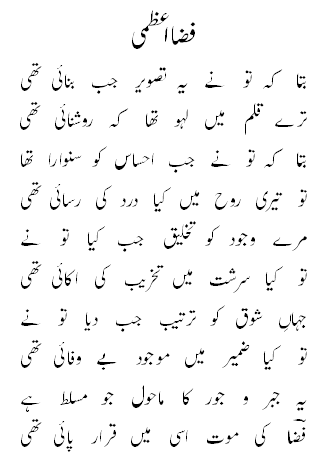 فضا اعظمی
بتا کہ تو نے یہ تصویر جب بنائی تھی
ترے قلم میں لہو تھا کہ روشنائی تھی
بتا کہ تو نے جب احساس کو سنوارا تھا
تو تیری روح میں کیا درد کی رسائی تھی
مرے وجود کو تخلیق جب کیا تو نے
تو کیا سرشت میں تخریب کی اکائی تھی
جہاں شوق کو ترتیب جب دیا تو نے
تو کیا ضمیر میں موجود بے وفائی تھی
یہ جبر و جور کا ماحول جو مسلط ہے
فضاؔ کی موت اسی میں قرار پائی تھی